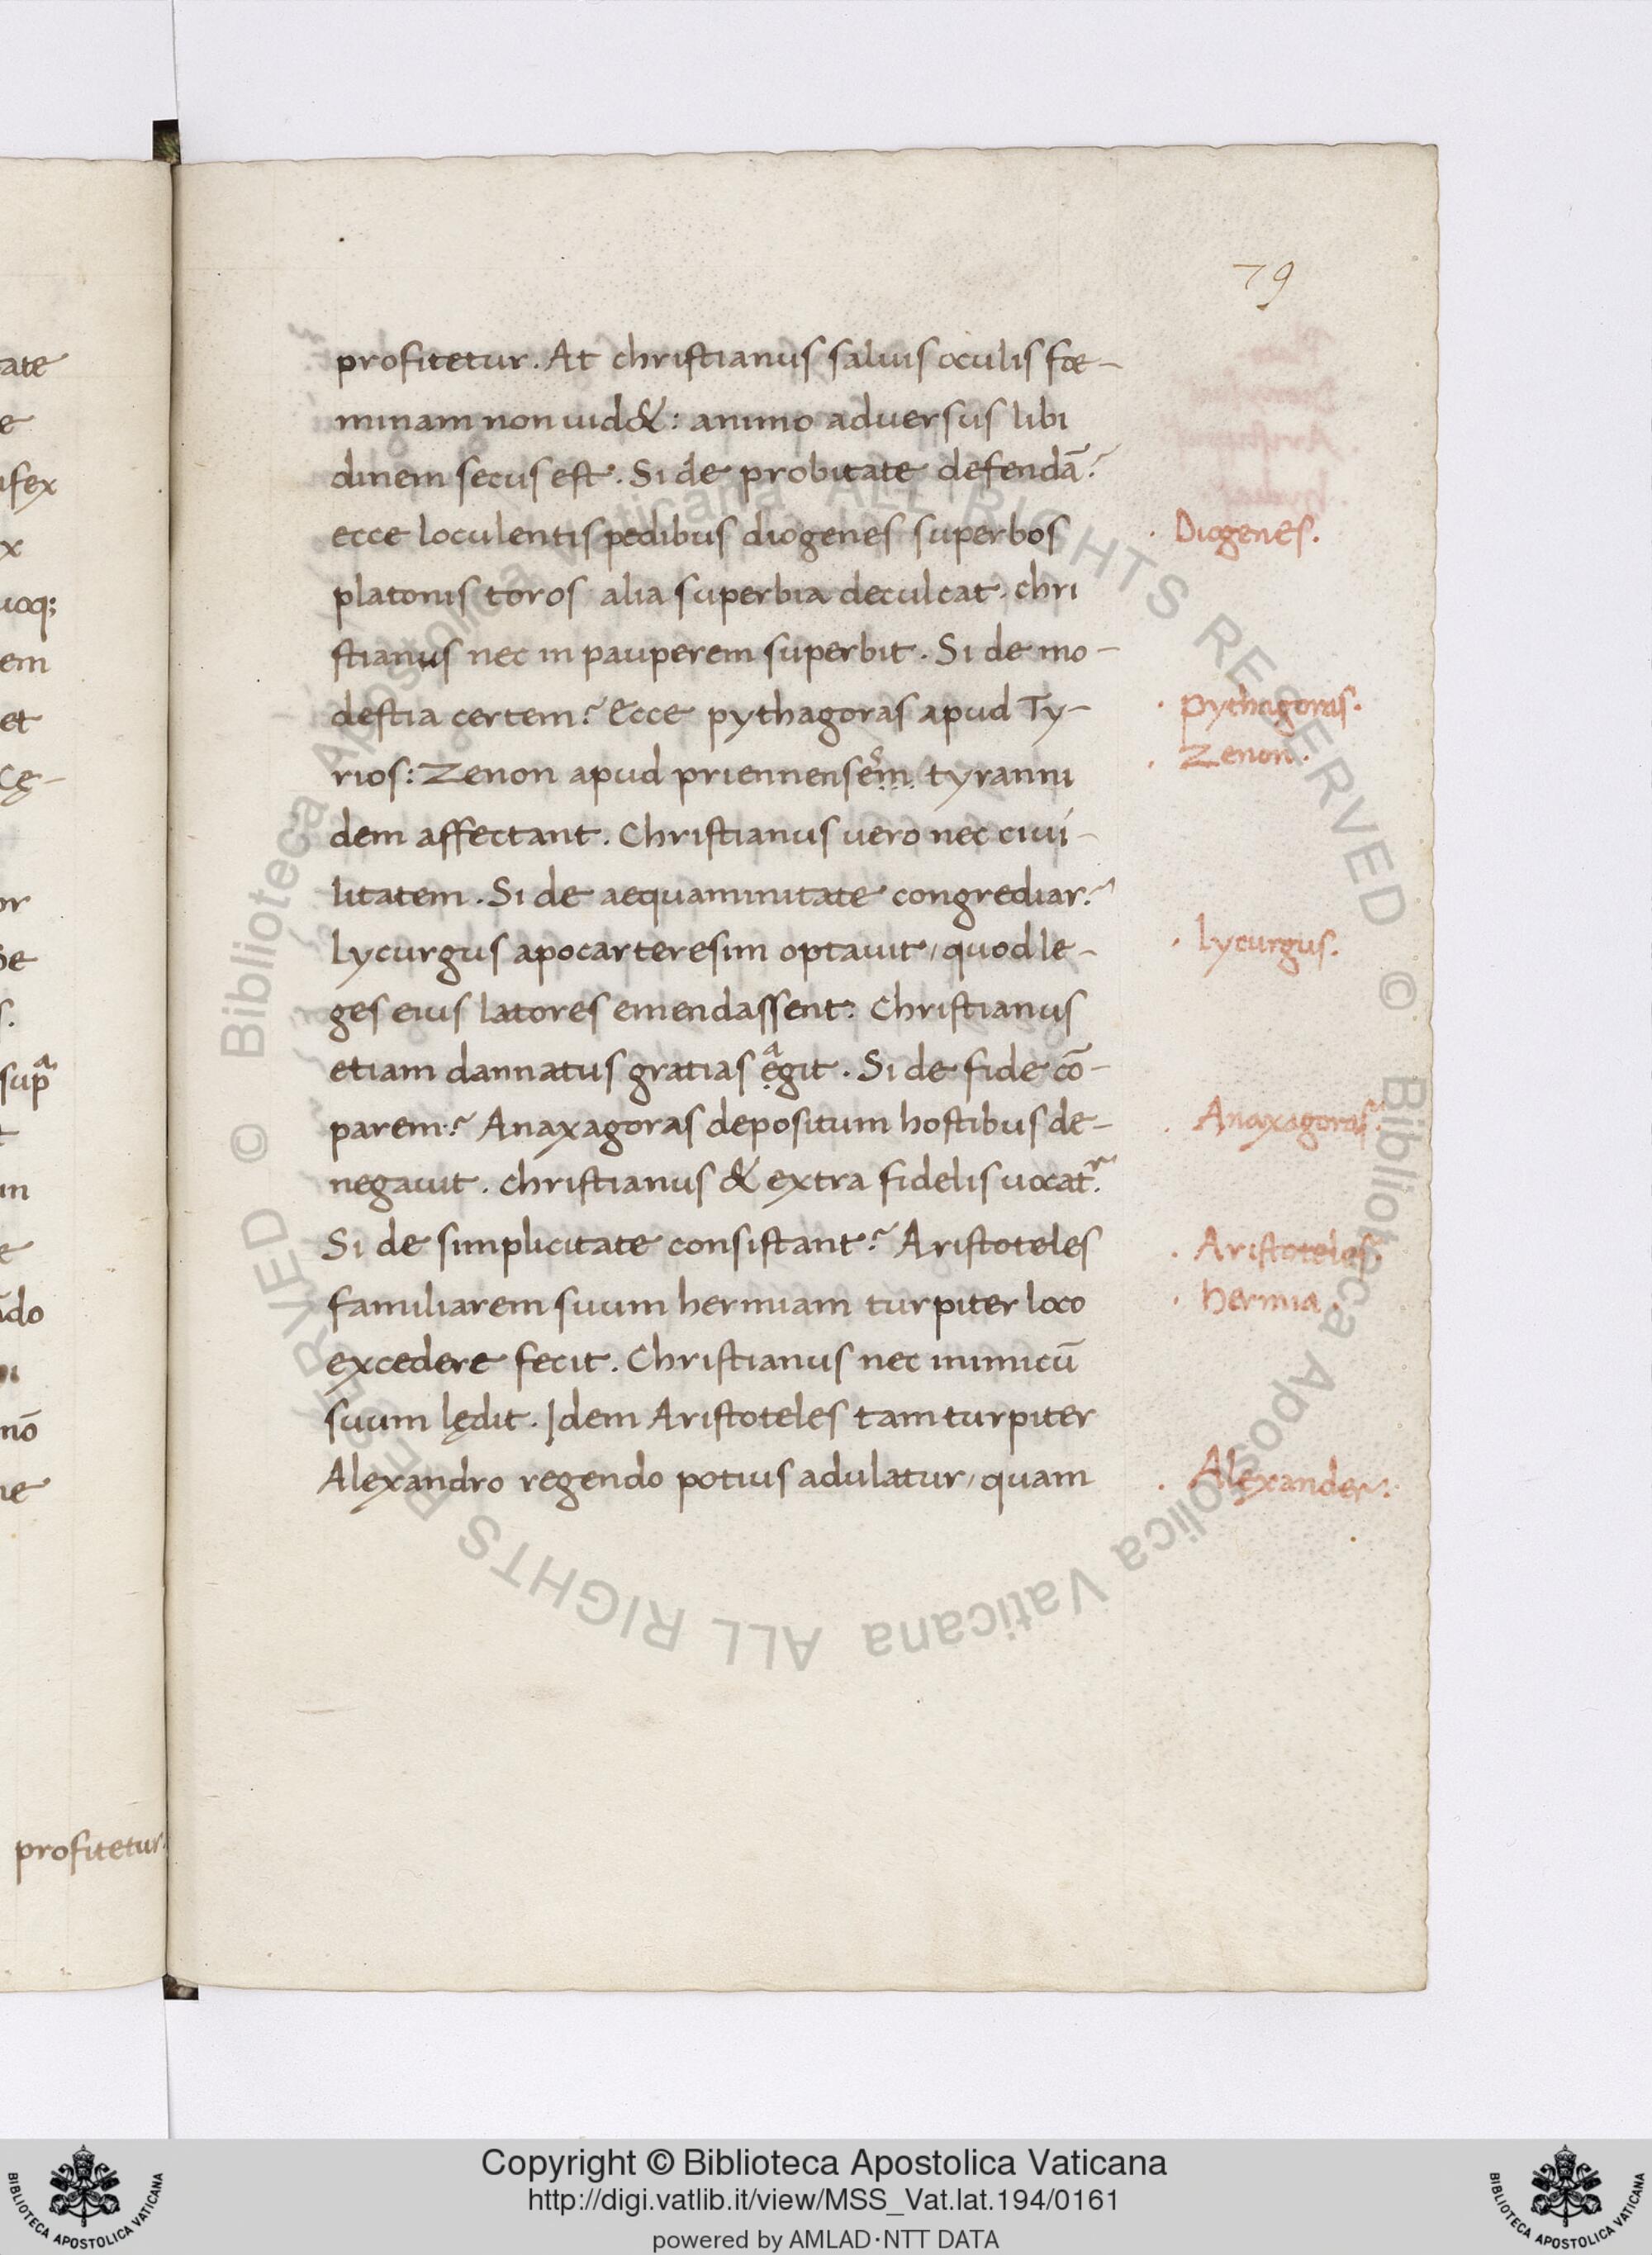 79
profitetur. At christianus saluis oculis foe-
minam non uid&: animo aduersus libi
dinem secus est. Si de probitate defendā?
ecce loculentis pedibus diogenes superbos
Diogenes.
platonis toros alia superbia deculcat. chri
stianus nec in pauperem superbit. Si de mo-
destia certem? Ecce pythagoras apud Ty-
pythagoras.
rios: Zenon apud priennensem tyranni
Zenon.
dem affectant. Christianus uero nec ciui-
litatem. Si de aequaminitate congrediar?
Lycurgus apocarteresim optauit, quod le-
Lycurgus.
ges eius latores emendassent: Christianus
etiam dannatus gratias egit. Si de fide cō-
parem? Anaxagoras depositum hostibus de-
Anaxagoras.
negauit. christianus & extra fidelis uocatr.
Si de simplicitate consistant? Aristoteles
Aristoteles.
familiarem suum hermiam turpiter loco
hermia.
excedere fecit. Christianus nec inimicū
suum lędit. Idem Aristoteles tam turpiter
Alexandro regendo potius adulatur, quam
Alexander.
ate
e
ifex
x
uoq;
em
et
cę-
or
s.
supa
in
e
ādo
nō
ne
profitetur.
© Biblioteca Apostolica Vaticana ALL RIGHTS RESERVED
© Biblioteca Apostolica Vaticana ALL RIGHTS RESERVED
Copyright © Biblioteca Apostolica Vaticana
http://digi.vatlib.it/view/MSS_Vat.lat.194/0161
powered by AMLAD·NTT DATA
BIBLIOTECA APOSTOLICA VATICANA
BIBLIOTECA APOSTOLICA VATICANA